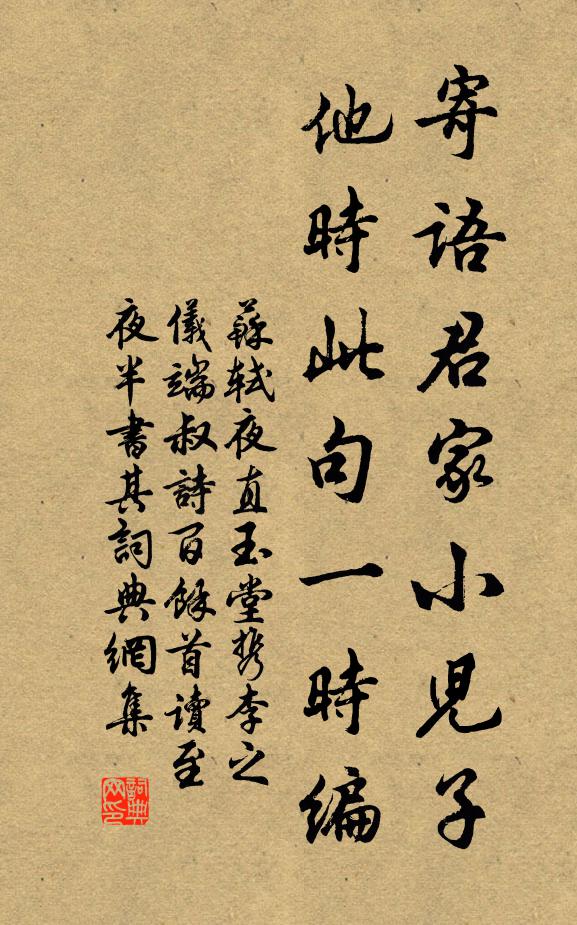 寄語君家小兒子
他時此句一時編
蘇軾夜直玉堂攜李之
儀端叔詩百餘首讀至
夜半書其詞典網集
詞典网印